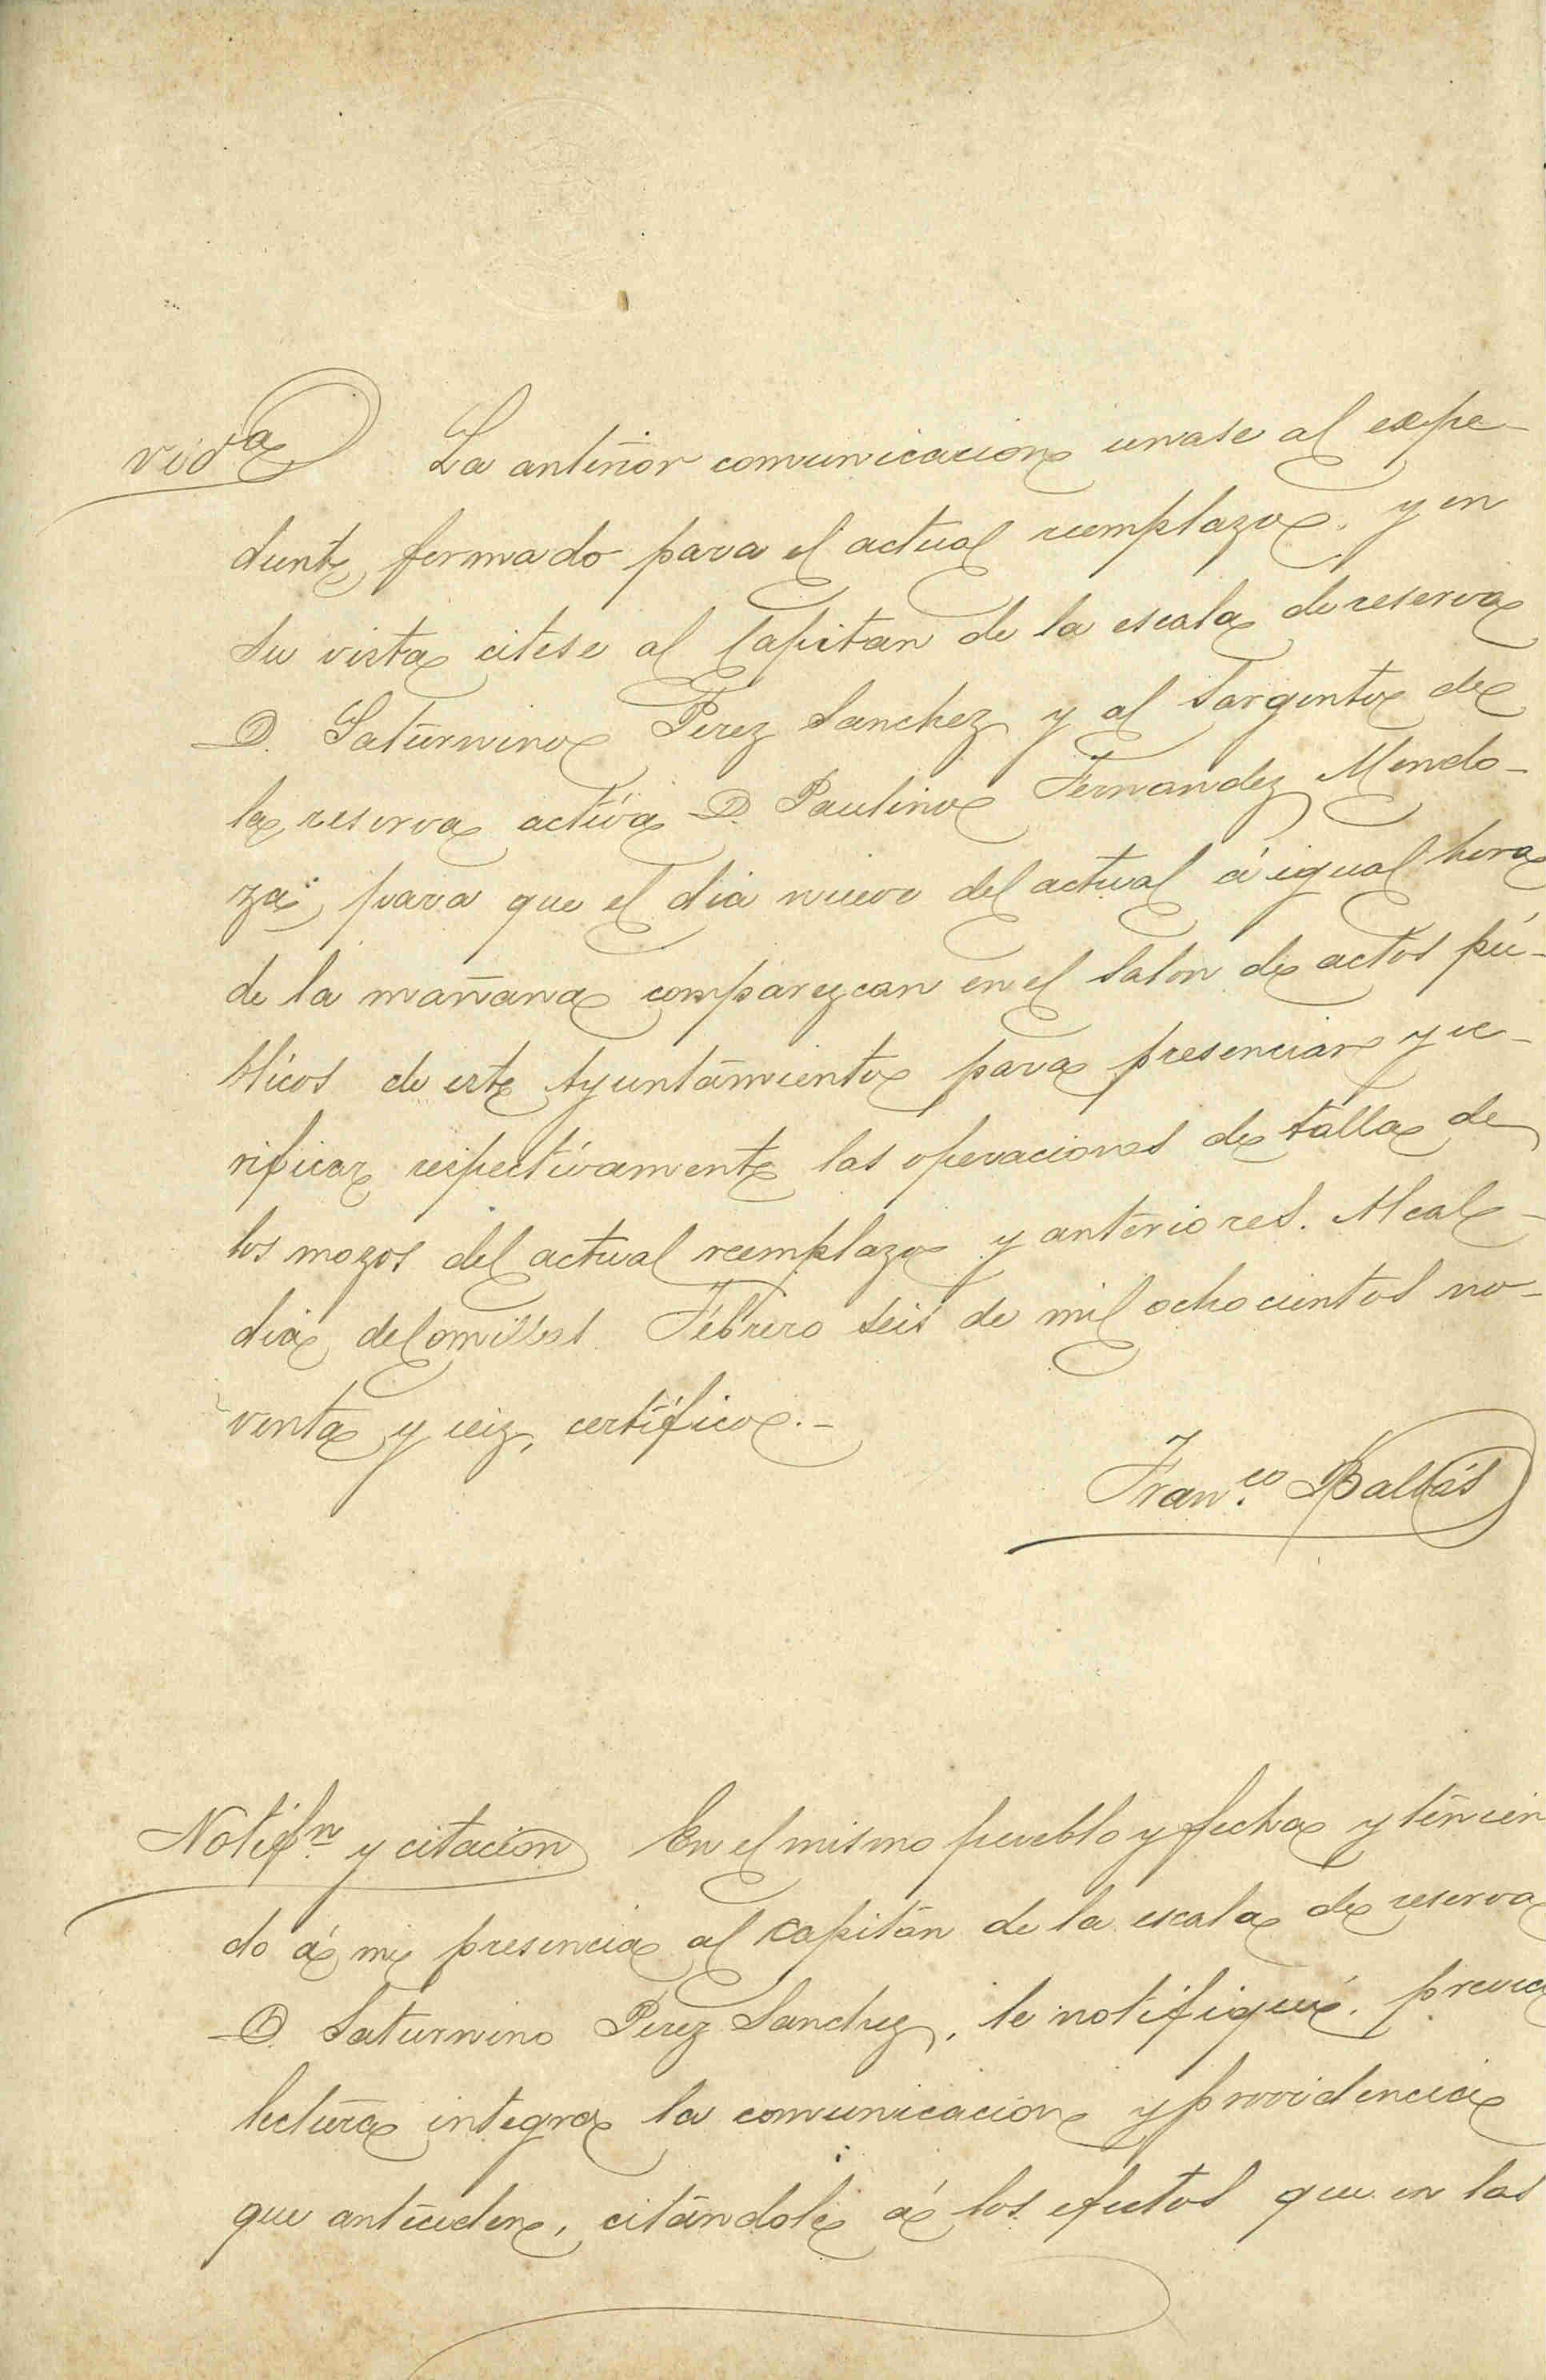 vid.ª La anterior comunicacion unase al expe-
diente formado para el actual reemplazo, y en
su vista citese al Capitan de la escala de reserva
D. Saturnino Perez Sanchez y al Sargento de
la reserva activa D. Paulino Fernandez Mendo-
za, para que el dia nueve del actual á igual hora
de la mañana comparezcan en el salon de actos pú-
blicos de este Ayuntamiento para presenciar y ve-
rificar respectivamente las operaciones de talla de
los mozos del actual reemplazo y anteriores. Alcal-
dia de Febrero seis de mil ochocientos no-
venta y seiz, certifico.-
Fran.co Balbás
Notifn y citacion En el mismo pueblo y fecha y tenien
do á mi presencia al Capitán de la escala de reserva
D. Saturnino Perez Sanchez, le notifiqué, previa
lectura integra la comunicacion y providencia
que anteceden, citándole á los efectos que en las